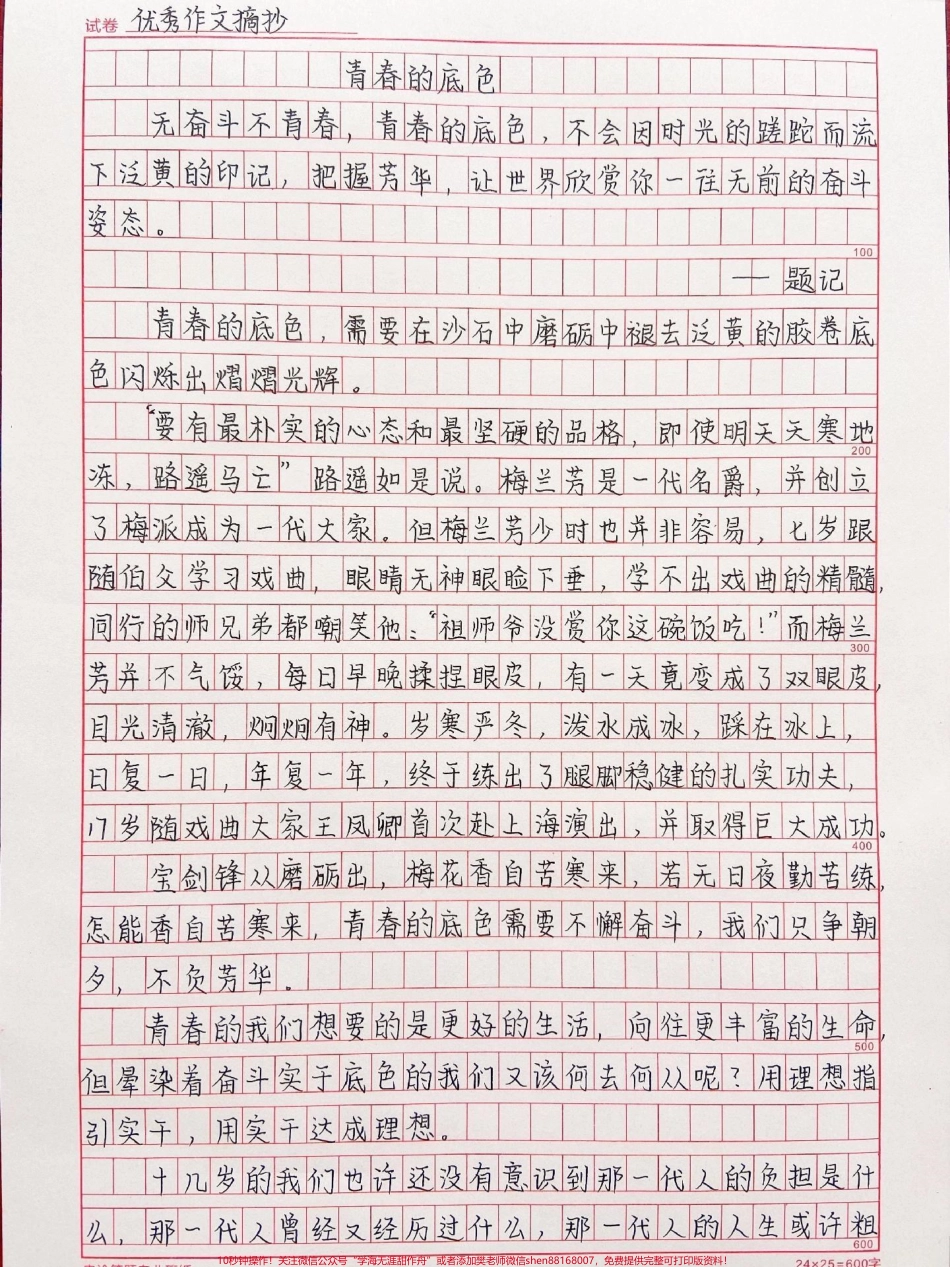 试卷 优秀作文摘抄
青春的底色
无奋斗不青春，青春的底色，不会因时光的蹉跎而流
下泛黄的印记，把握芳华，让世界欣赏你一往无前的奋斗
姿态。
100
——题记
青春的底色，需要在沙石中磨砺中褪去泛黄的胶卷底
色闪烁出熠熠光辉。
“要有最朴实的心态和最坚硬的品格，即使明天天寒地
200
冻，路遥马亡”路遥如是说。梅兰芳是一代名爵，并创立
了梅派成为一代大家。但梅兰芳少时也并非容易，七岁跟
随伯父学习戏曲，眼睛无神眼睑下垂，学不出戏曲的精髓，
同行的师兄弟都嘲笑他：“祖师爷没赏你这碗饭吃！”而梅兰
300
芳并不气馁，每日早晚揉捏眼皮，有一天竟变成了双眼皮，
目光清澈，炯炯有神。岁寒严冬，泼水成冰，踩在冰上，
日复一日，年复一年，终于练出了腿脚稳健的扎实功夫，
17岁随戏曲大家王凤卿首次赴上海演出，并取得巨大成功。
400
宝剑锋从磨砺出，梅花香自苦寒来，若无日夜勤苦练，
怎能香自苦寒来，青春的底色需要不懈奋斗，我们只争朝
夕，不负芳华。
青春的我们想要的是更好的生活，向往更丰富的生命，
500
但晕染着奋斗实于底色的我们又该何去何从呢？用理想指
引实干，用实干达成理想。
十几岁的我们也许还没有意识到那一代人的负担是什
么，那一代人曾经又经历过什么，那一代人的人生或许粗
600
10秒钟操作！关注微信公众号“学海无涯甜作舟”或者添加樊老师微信shen88168007，免费提供完整可打印版资料！
24×25=600字